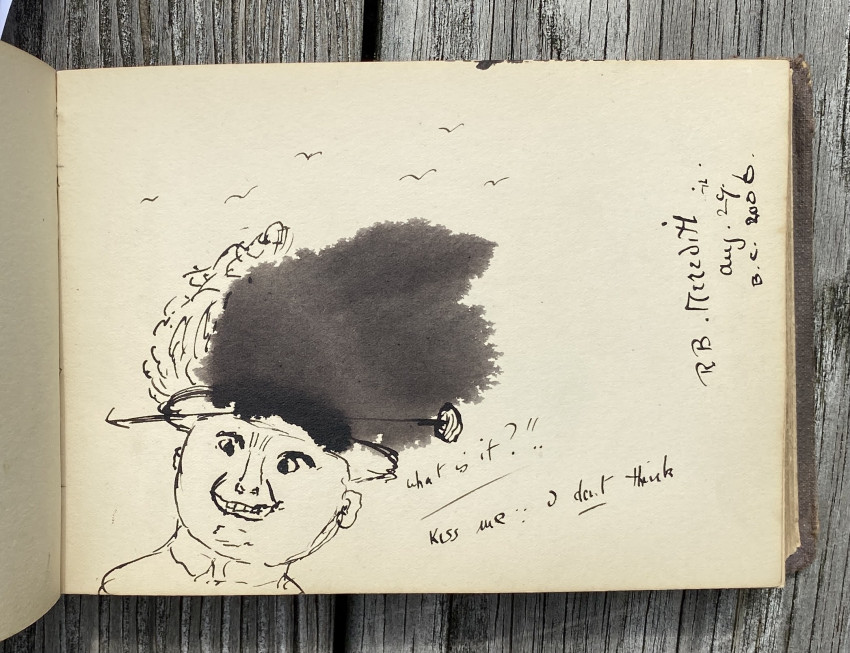 what is it?!!
Kiss me :: I don't think
R B. Meredith
aug. 29.
B.C. 2006.